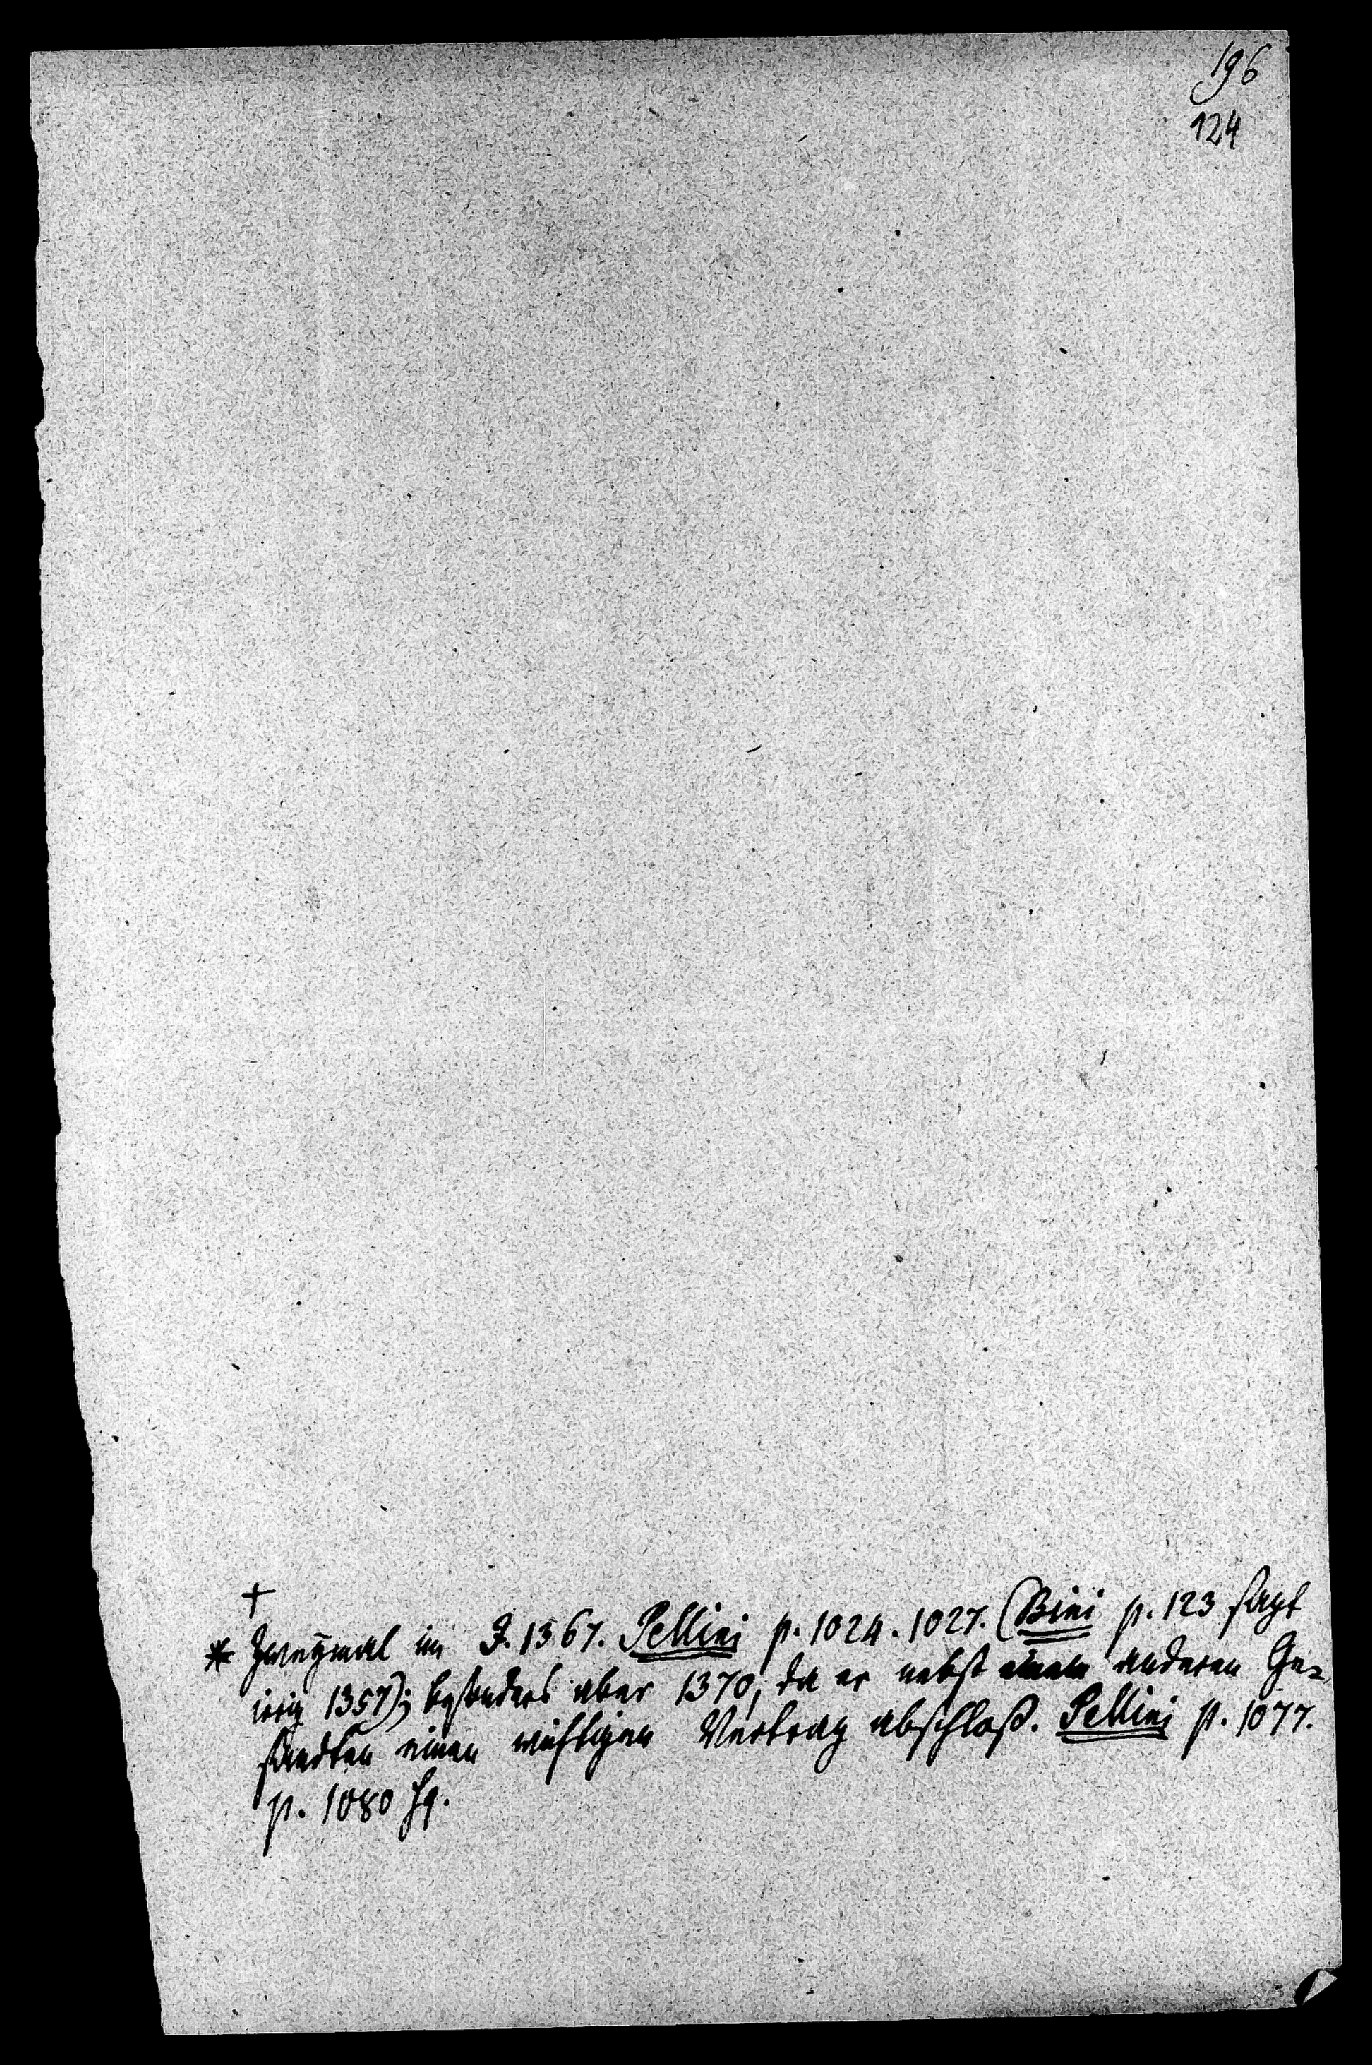 196
124
+
* Zweymal im J. 1367. Pellini p. 1024. 1027. (Bini p. 123 sagt
irrig 1357); besonders aber 1370, da er nebst einem anderen Ge-
sandten einen wichtigen Vertrag abschloß. Pellini p. 1077.
p. 1080 sq.